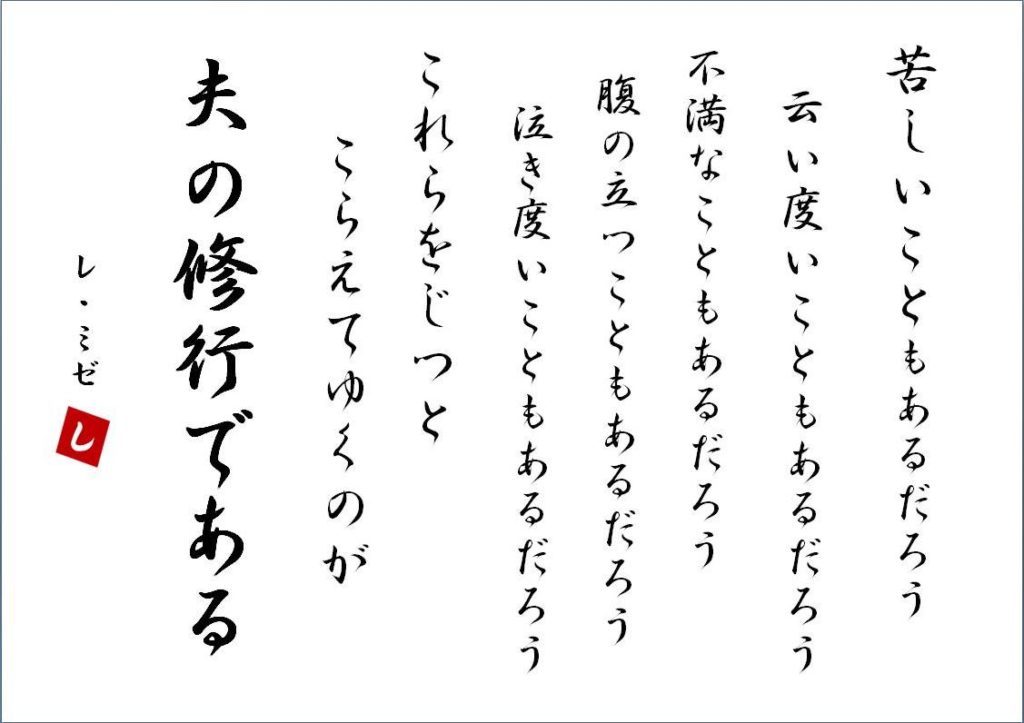 苦しいこともあるだろう
云い度いこともあるだろう
不満なこともあるだろう
腹の立つこともあるだろう
泣き度いこともあるだろう
これらをじつと
こらえてゆくのが
夫の修行である
レ・ミゼ
し